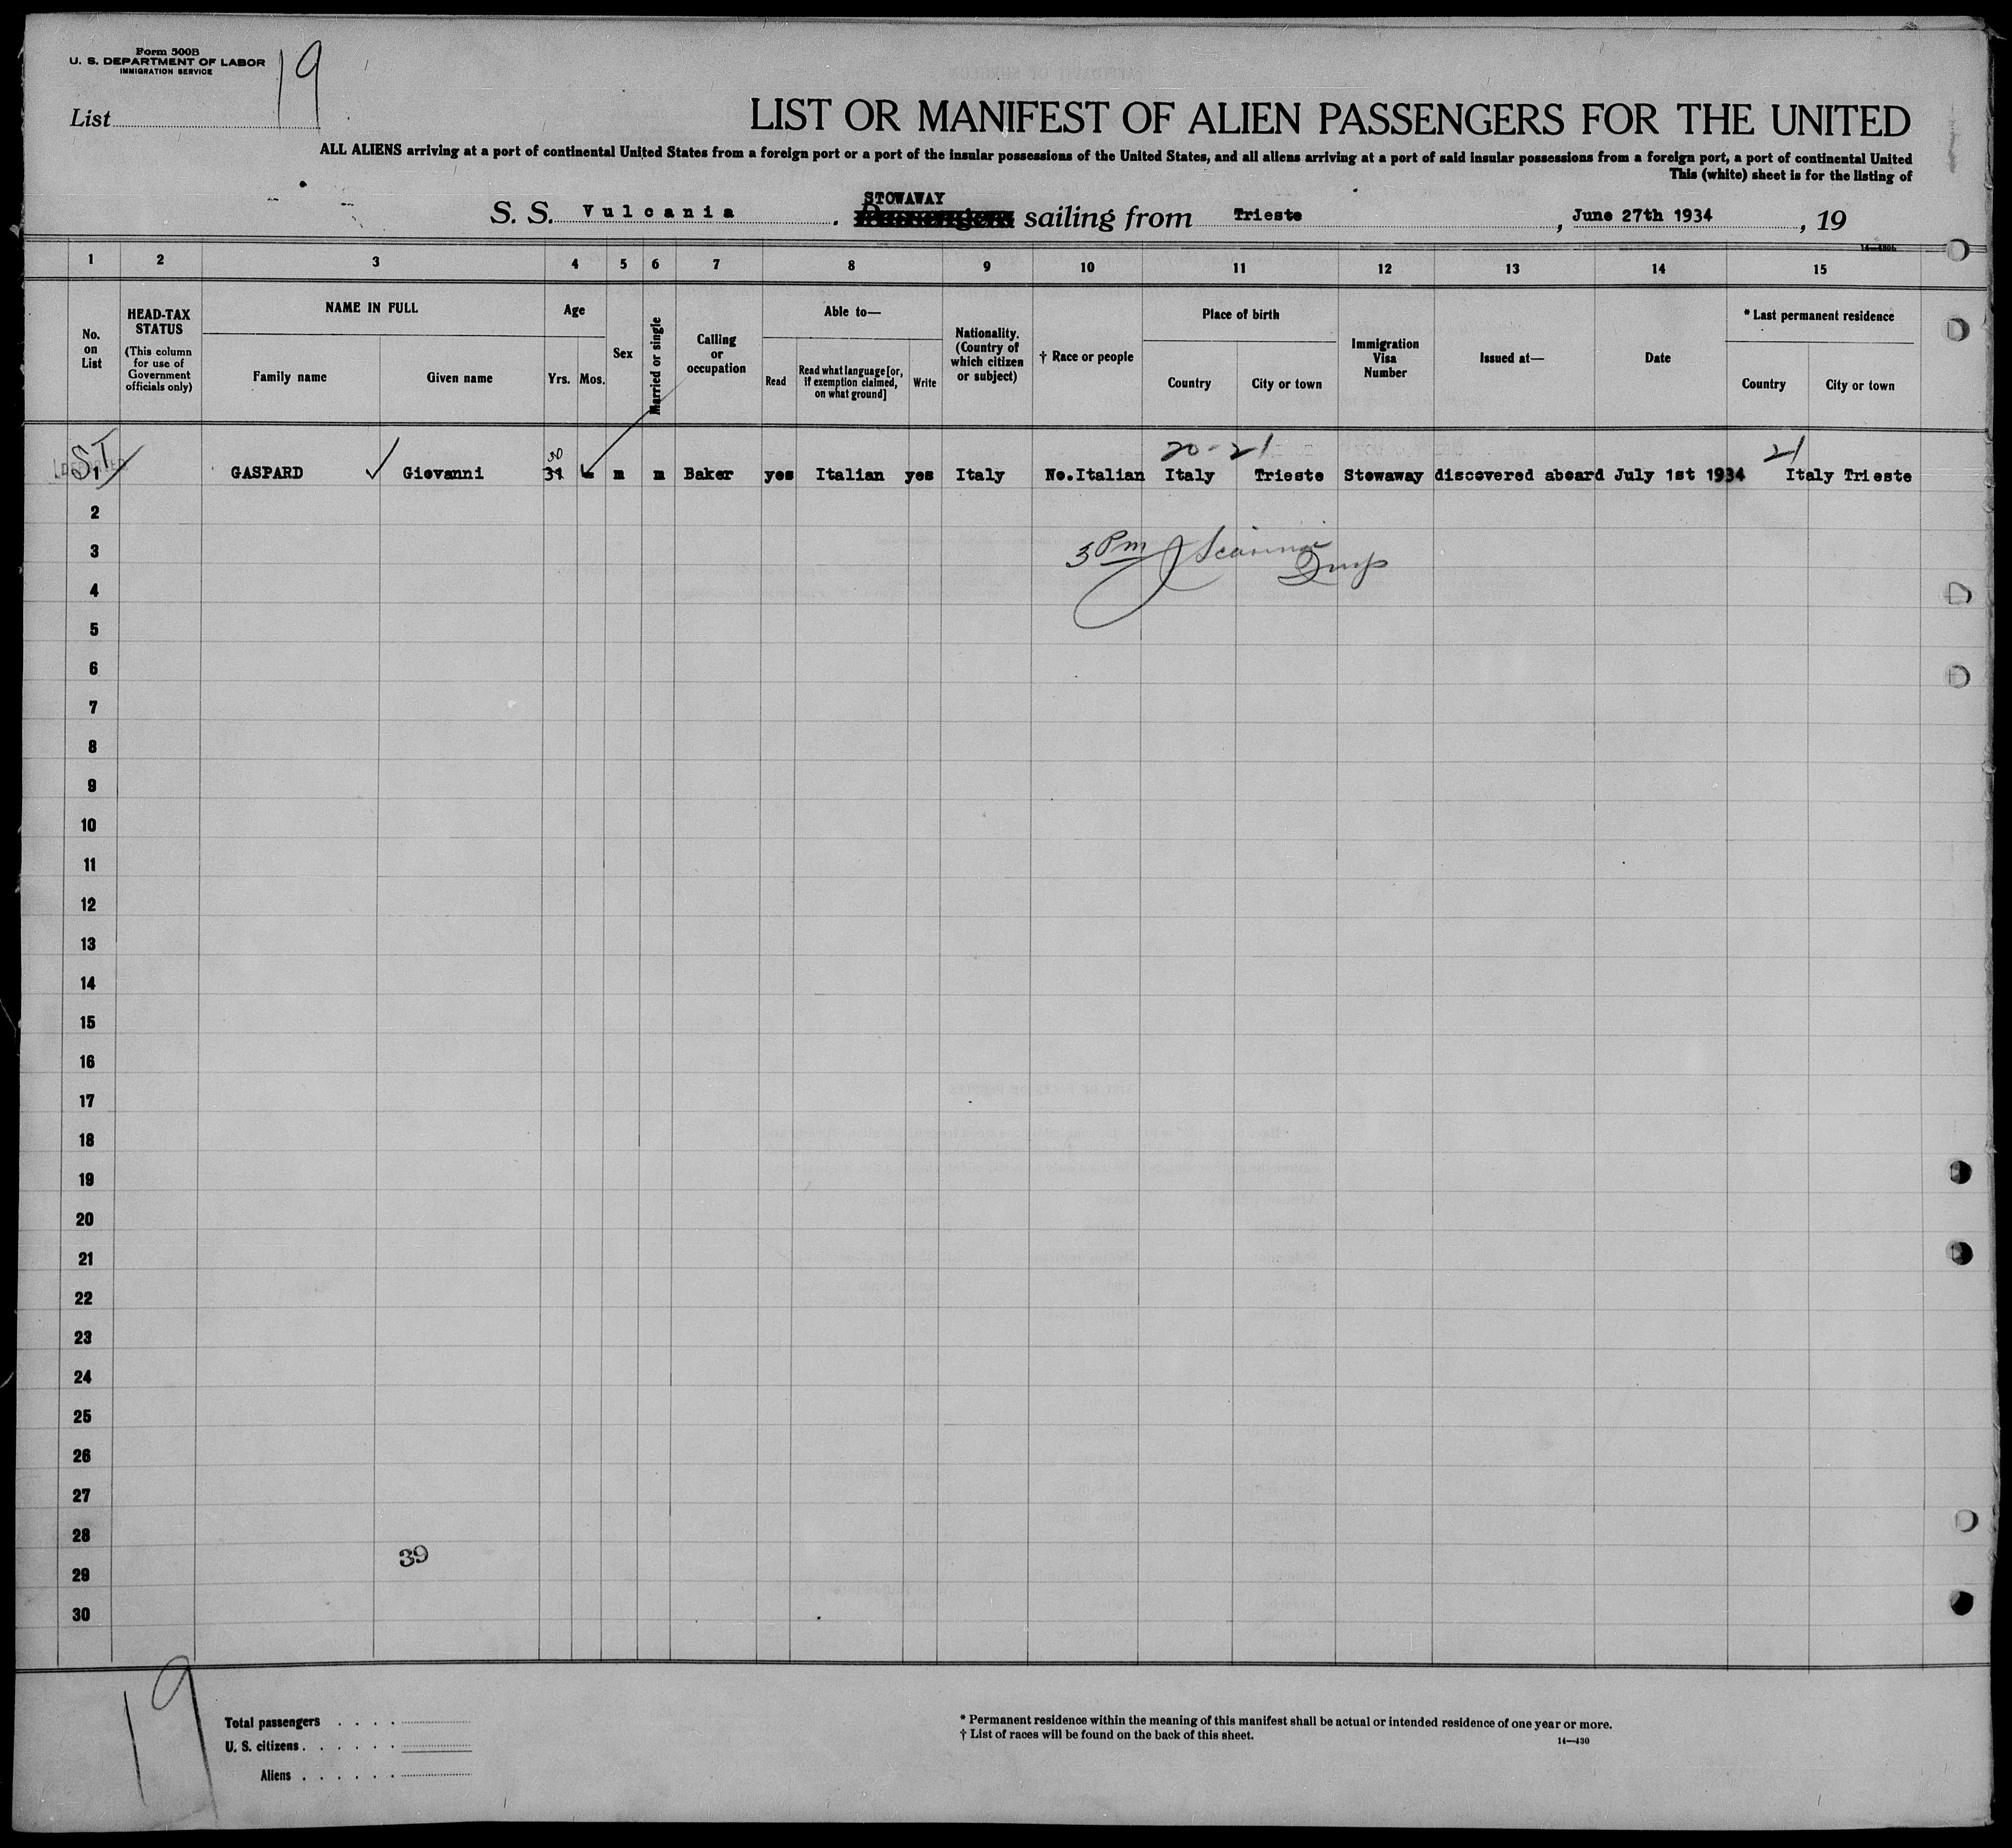 Form 500B
U. S. DEPARTMENT OF LABOR
IMMIGRATION SERVICE
19
List
LIST OR MANIFEST OF ALIEN PASSENGERS FOR THE UNITED
ALL ALIENS arriving at a port of continental United States from a foreign port or a port of the insular possessions of the United States, and all aliens arriving at a port of said insular possessions from a foreign port, a port of continental United
This (white) sheet is for the listing of
STOWAWAY
S. S. Vulcania . Passengers sailing from Trieste , June 27th 1934 , 19
14—430b
1 2 3 4 5 6 7 8 9 10 11 12 13 14 15
No. on List
HEAD-TAX STATUS
(This column for use of Government officials only)
NAME IN FULL
Family name Given name
Age
Yrs. Mos.
Sex
Married or single
Calling or occupation
Able to—
Read
Read what language [or, if exemption claimed, on what ground]
Write
Nationality. (Country of which citizen or subject)
† Race or people
Place of birth
Country City or town
Immigration Visa Number
Issued at—
Date
* Last permanent residence
Country City or town
ST 30 20-21 21
1 GASPARD Giovanni 31 m m Baker yes Italian yes Italy No.Italian Italy Trieste Stowaway discovered aboard July 1st 1934 Italy Trieste
2
3 3 Pm
Insp
4
5
6
7
8
9
10
11
12
13
14
15
16
17
18
19
20
21
22
23
24
25
26
27
28
39
29
30
19
Total passengers
U. S. citizens
Aliens
* Permanent residence within the meaning of this manifest shall be actual or intended residence of one year or more.
† List of races will be found on the back of this sheet.
14—430